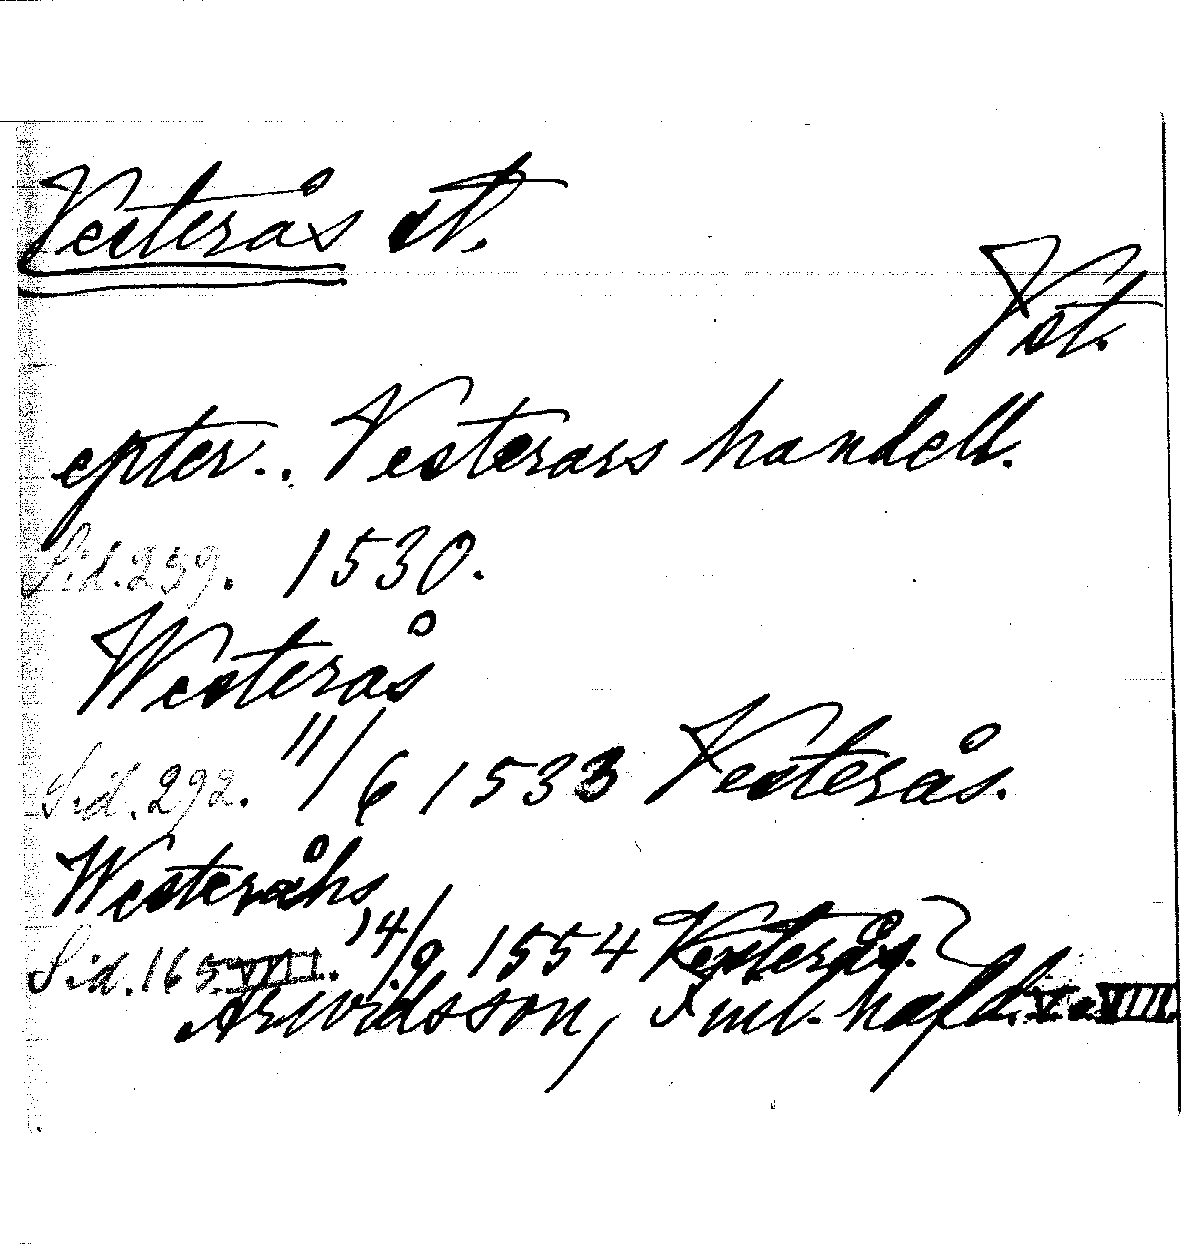 Vesterås st.
Vst.
epter.. Vesterars handell.
Sid. 259. 1530.
Westerås
Sid. 292. 11/6 1533 Vesterås.
Westeråhs
Sid. 165 VIII. 14/9 1554 Vesterås.
Arwidsson, Finl. häfd. V o. VIII.